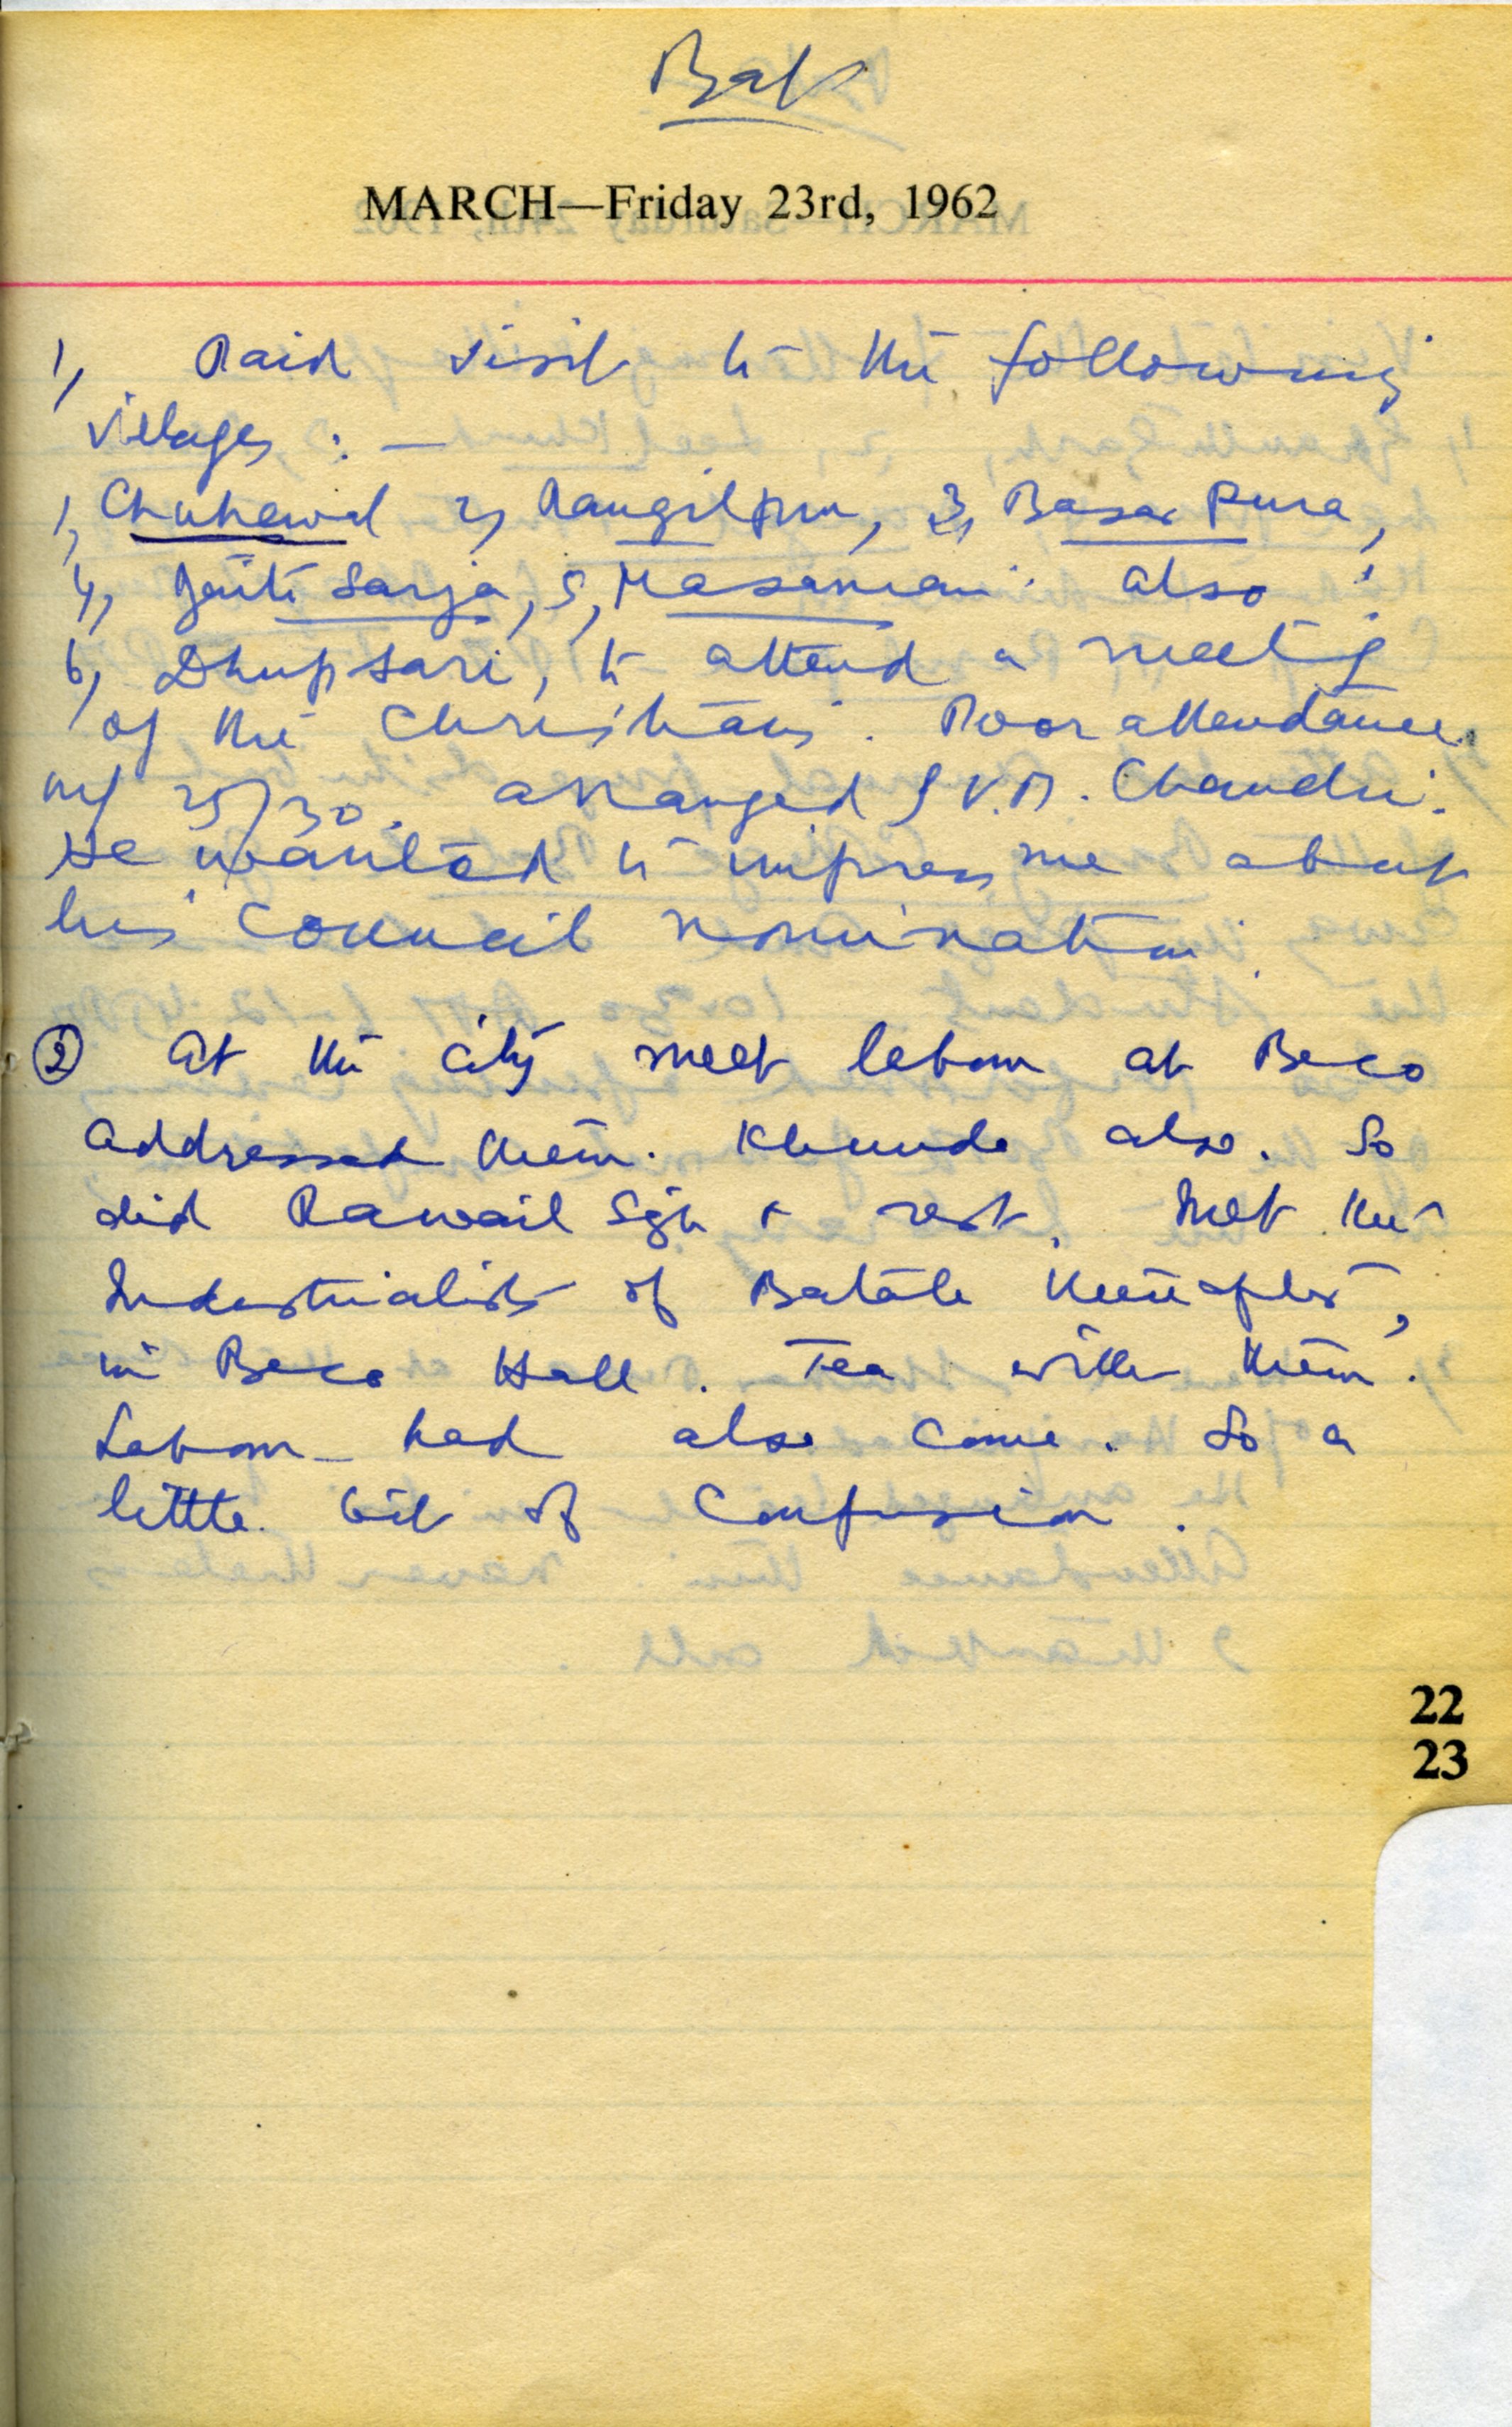 Bat
MARCH—Friday 23rd, 1962
1, Paid visit to the following
villages : —
1, Chuhewal 2, Rangilpur, 3, Basarpura,
4, Jaiti Sarja, 5, Masanian: also :
6, Dhupsari, to attend a meeting
of the Christians. Poor attendance
25/30. arranged V.M. Chandu.
He wanted to impress me about
his Council nomination.
② At the city meet labour at Beco
addressed them. Khunda also. So
did Rawail Sgh & rest. Met the
Industrialists of Batala thereafter,
in Beco Hall. Tea with them.
Labour had also come. So a
little bit of Confusion.
22
23